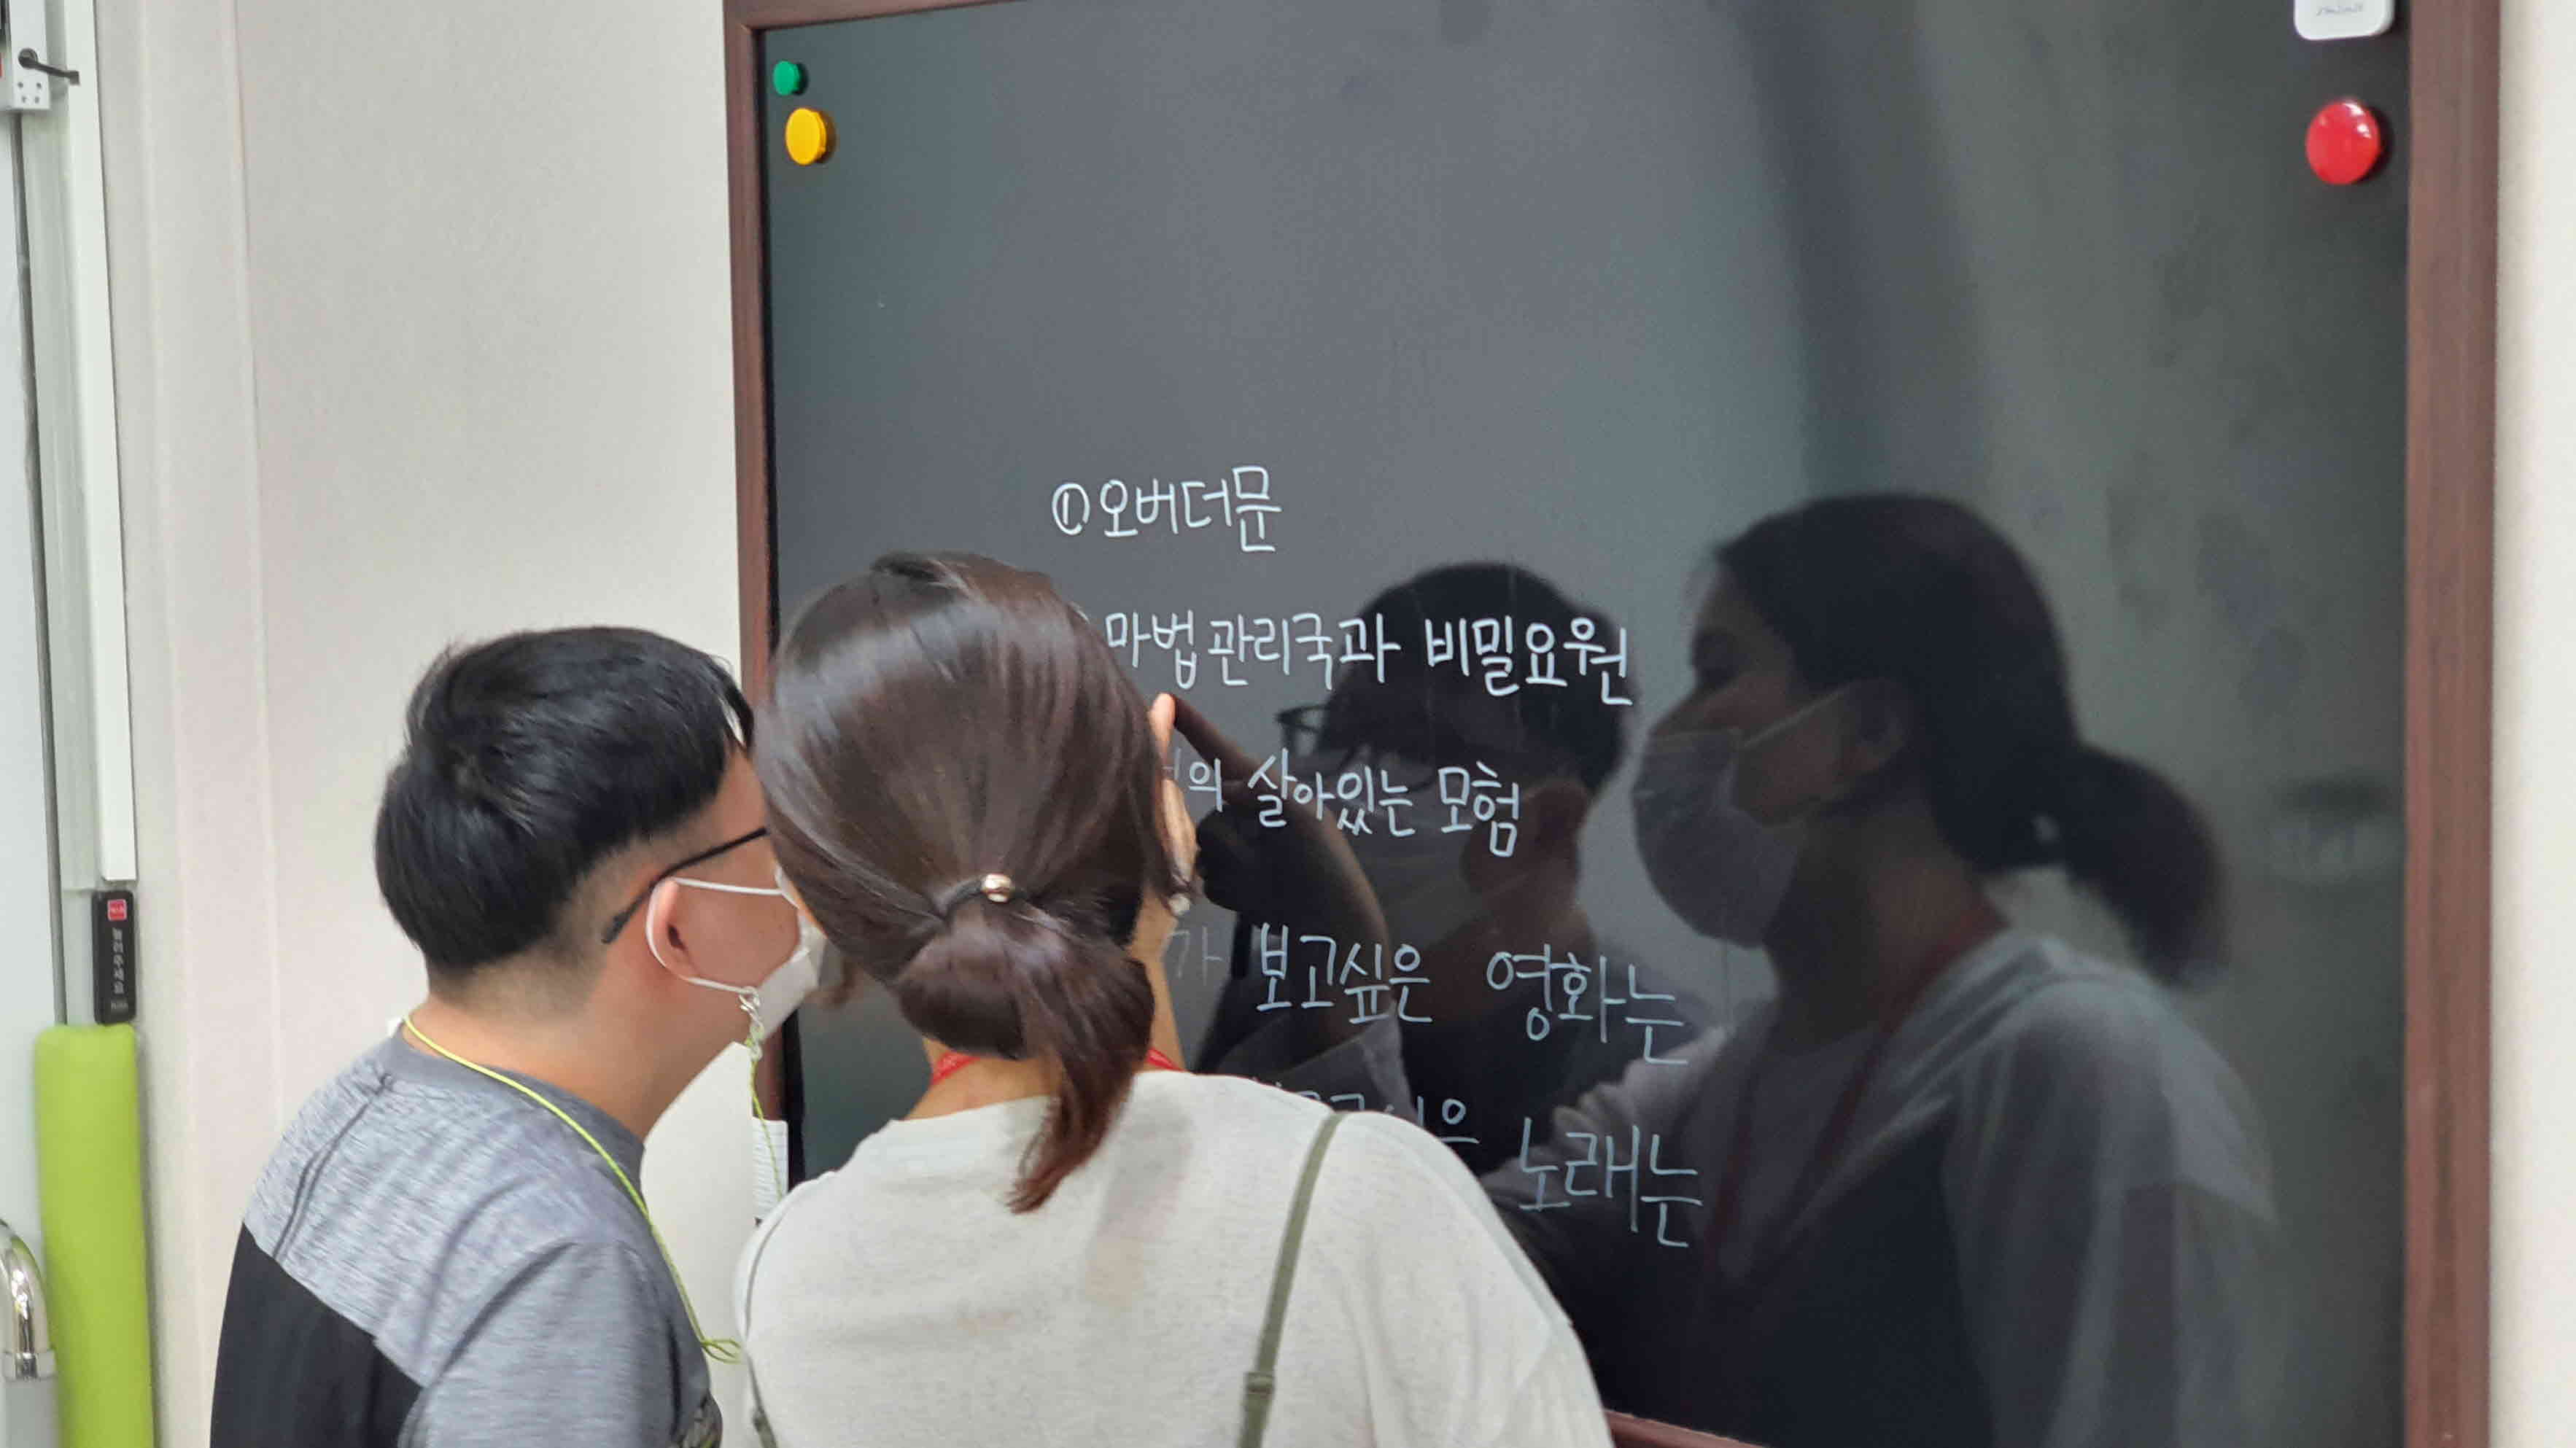 눌러주세요
① 오버더문
마법관리국과 비밀요원
의 살아있는 모험
가 보고싶은 영화는
은 노래는